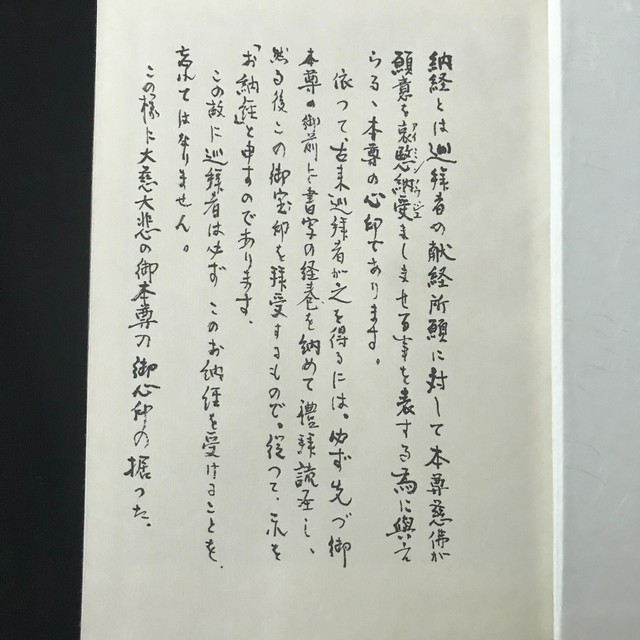 納経とは巡拝者の献経所願に対して本尊慈佛が
願意を哀愍納受ましませる事を表する為に與え
らる、本尊の心印であります。
依つて、古来巡拝者が之を得るには、必ず先づ御
本尊の御前に書写の経巻を納めて禮拝読誦し、
然る後この御宝印を拝受するもので、従つて、之を
「お納経」と申すのであります。
この故に巡拝者は必ず このお納経を受けることを、
忘れてはなりません。
この様に大慈大悲の御本尊の御心印の据つた、